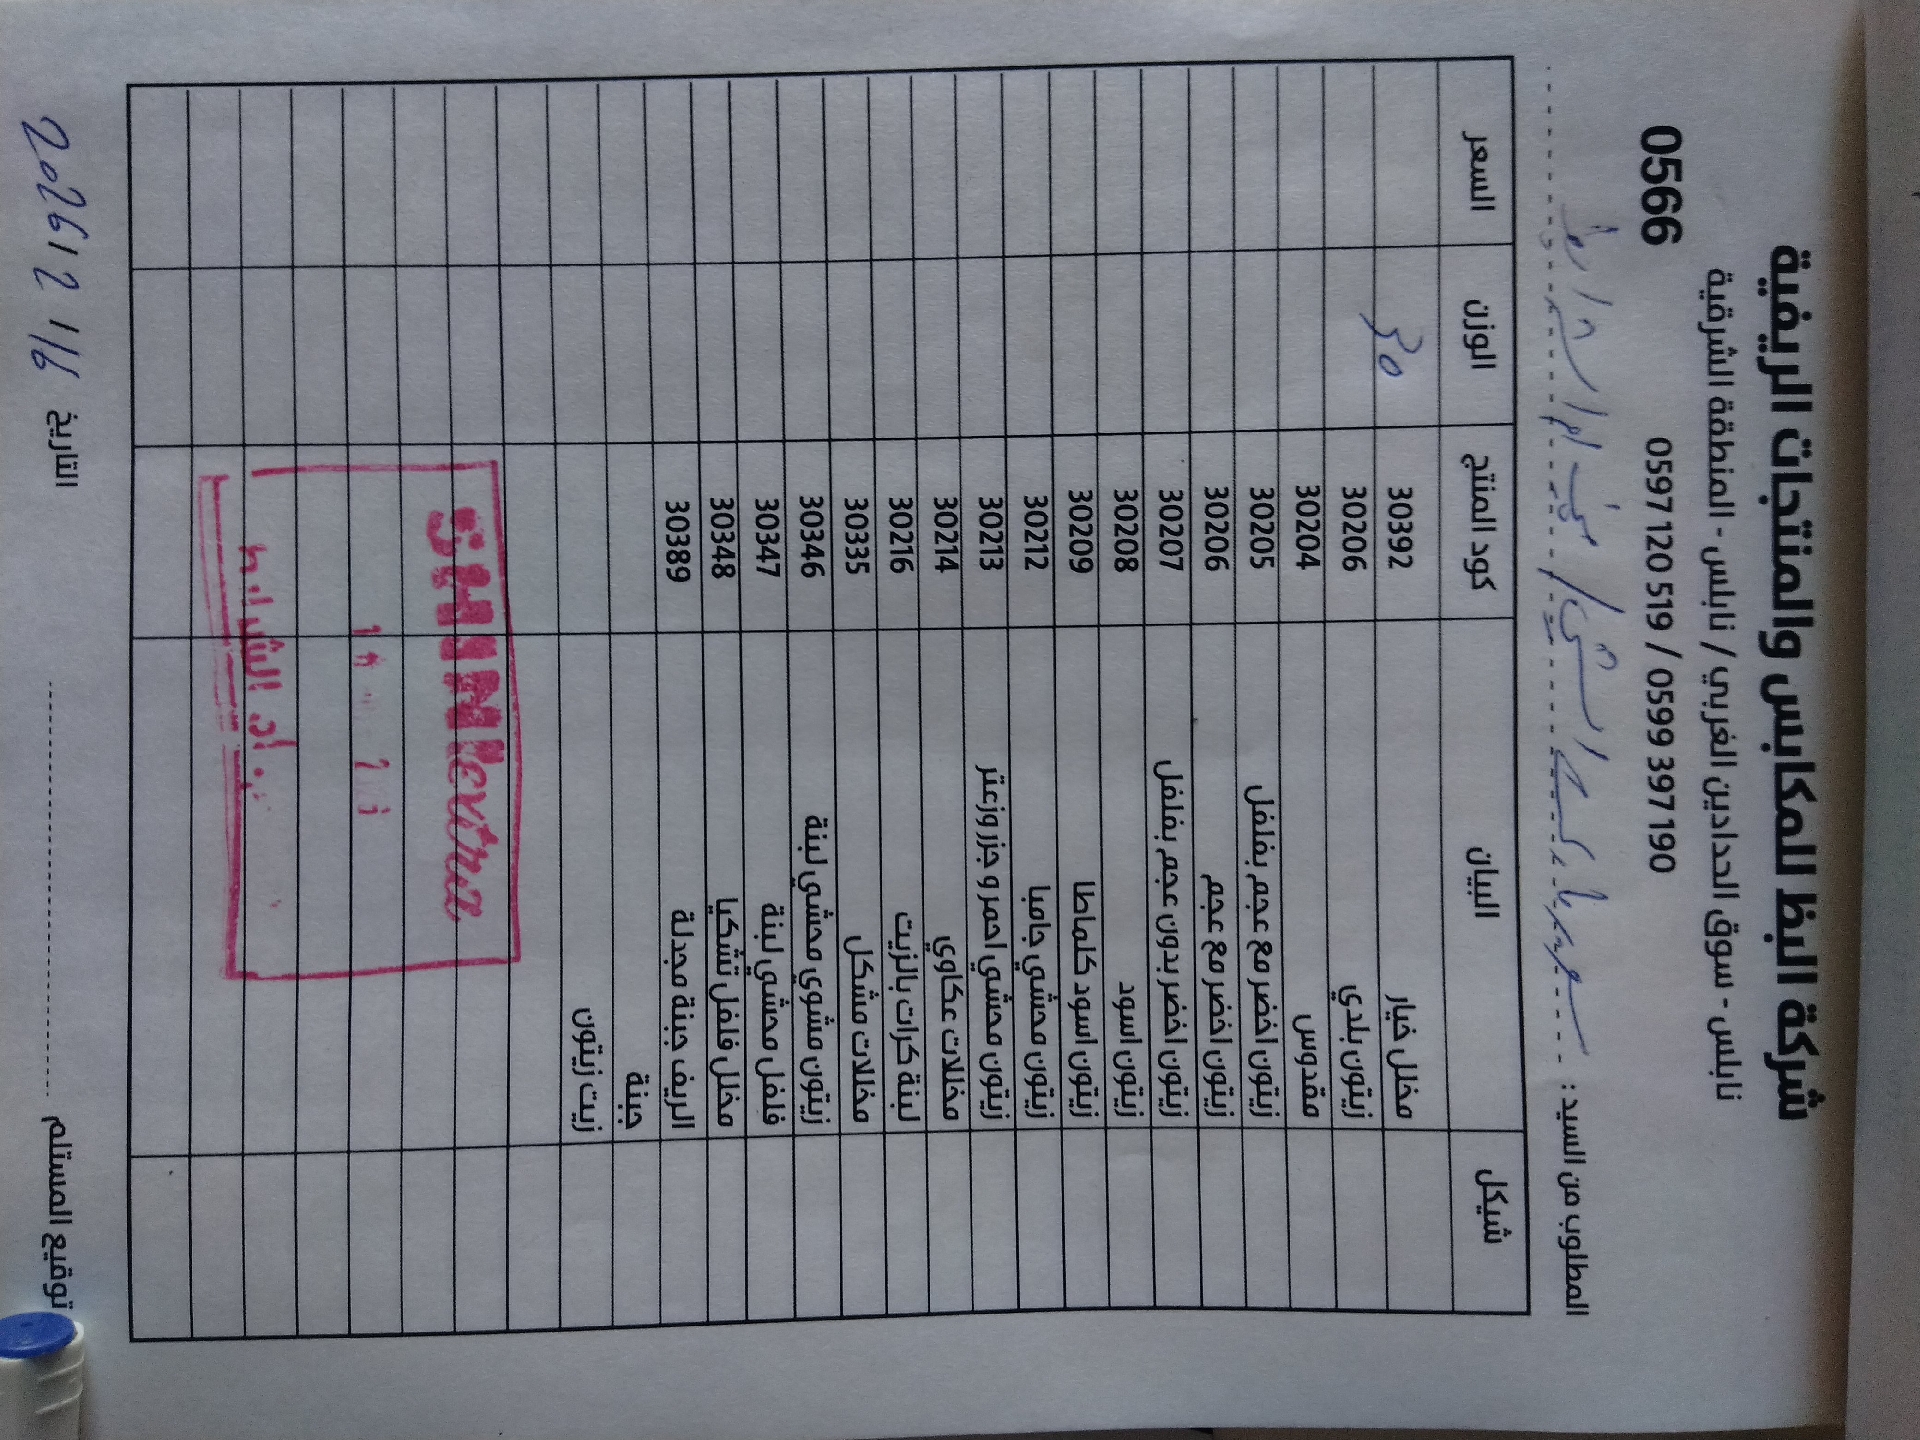 شركة البظ للمكابس والمنتجات الريفية
نابلس - سوق الحدادين الغربي / نابلس - المنطقة الشرقية
0566 0597 120 519 / 0599 397 190
المطلوب من السيد :
شيكل البيان كود المنتج الوزن السعر
مخلل خيار 30392
زيتون بلدي 30206
مقدوس 30204
زيتون اخضر مع عجم بفلفل 30205
زيتون اخضر مع عجم 30206
زيتون اخضر بدون عجم بفلفل 30207
زيتون اسود 30208
زيتون اسود كلماطا 30209
زيتون محشي جامبا 30212
زيتون محشي احمر و جزر وزعتر 30213
مخللات عكاوي 30214
لبنة كرات بالزيت 30216
مخللات مشكل 30335
زيتون مشوي محشي لبنة 30346
فلفل محشي لبنة 30347
مخلل فلفل تشكيا 30348
الريف جبنة مجدلة 30389
جبنة
زيت زيتون
SHINY extra
توقيع المستلم
التاريخ 16 / 2 / 2026